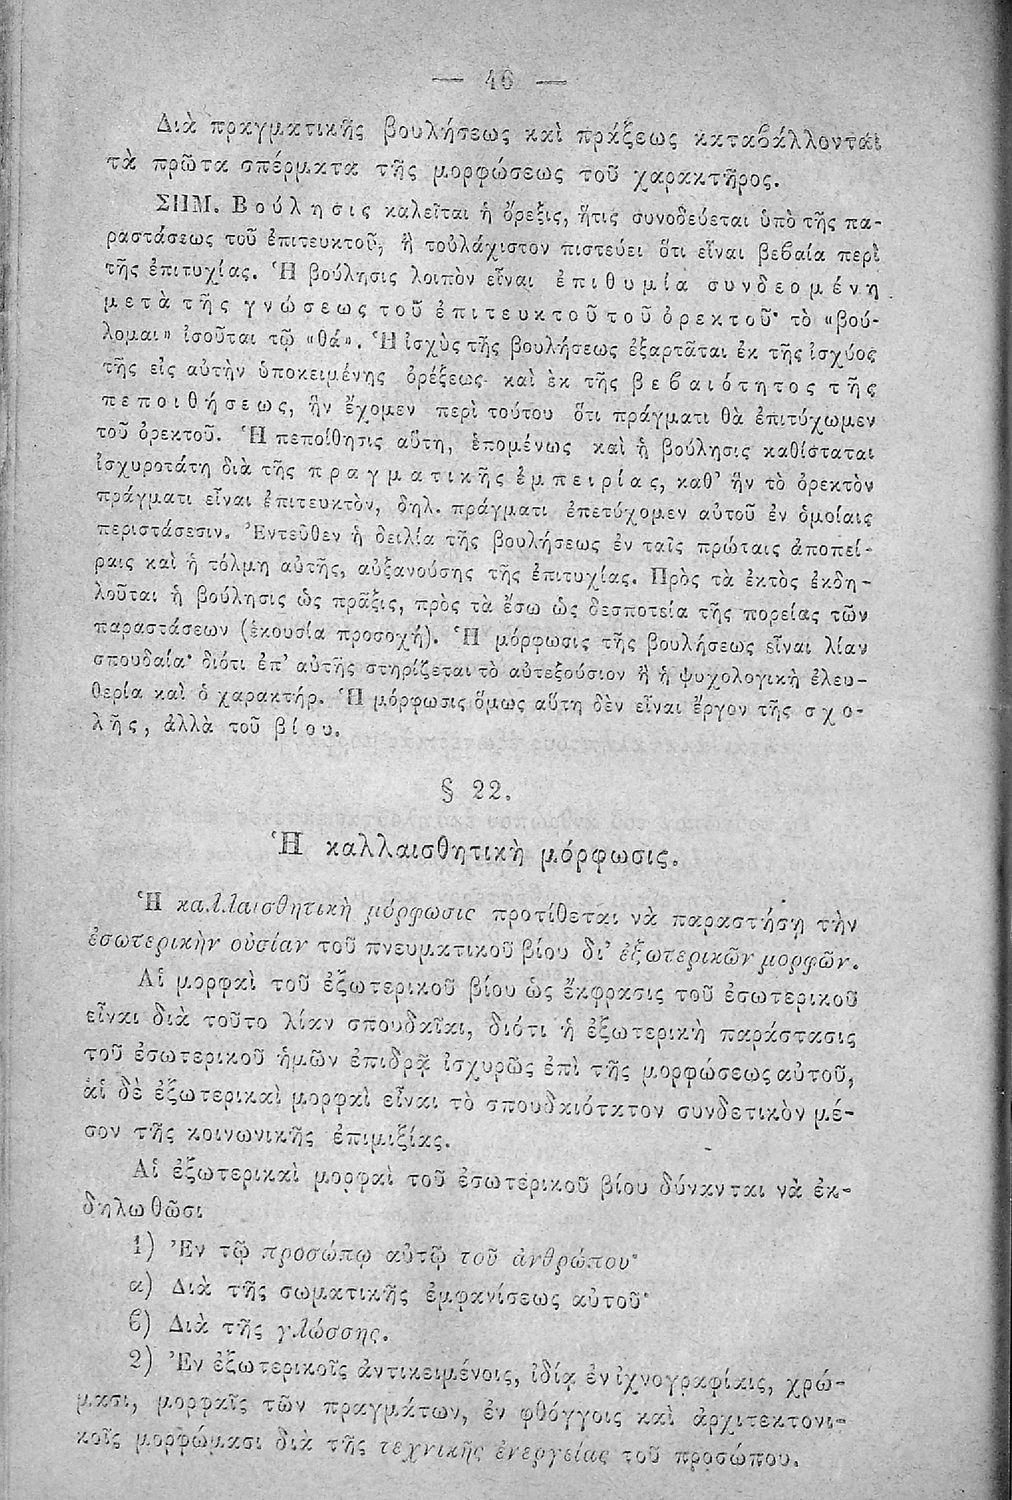 — 46 —
Διὰ πραγματικῆς βουλήσεως καὶ πράξεως καταβάλλονται
τὰ πρῶτα σπέρματα τῆς μορφώσεως τοῦ χαρακτῆρος.
ΣΗΜ. Βούλησις καλεῖται ἡ ὄρεξις, ἥτις συνοδεύεται ὑπὸ τῆς πα-
ραστάσεως τοῦ ἐπιτευκτοῦ, ἢ τοὐλάχιστον πιστεύει ὅτι εἶναι βεβαία περὶ
τῆς ἐπιτυχίας. Ἡ βούλησις λοιπὸν εἶναι ἐπιθυμία συνδεομένη
μετὰ τῆς γνώσεως τοῦ ἐπιτευκτοῦ τοῦ ὀρεκτοῦ· τὸ «βού-
λομαι» ἰσοῦται τῷ «θά». Ἡ ἰσχὺς τῆς βουλήσεως ἐξαρτᾶται ἐκ τῆς ἰσχύος
τῆς εἰς αὐτὴν ὑποκειμένης ὀρέξεως καὶ ἐκ τῆς βεβαιότητος τῆς
πεποιθήσεως, ἣν ἔχομεν περὶ τούτου ὅτι πράγματι θὰ ἐπιτύχωμεν
τοῦ ὀρεκτοῦ. Ἡ πεποίθησις αὕτη, ἑπομένως καὶ ἡ βούλησις καθίσταται
ἰσχυροτάτη διὰ τῆς πραγματικῆς ἐμπειρίας, καθ' ἣν τὸ ὀρεκτὸν
πράγματι εἶναι ἐπιτευκτὸν, δηλ. πράγματι ἐπετύχομεν αὐτοῦ ἐν ὁμοίαις
περιστάσεσιν. Ἐντεῦθεν ἡ δειλία τῆς βουλήσεως ἐν ταῖς πρώταις ἀποπεί-
ραις καὶ ἡ τόλμη αὐτῆς, αὐξανούσης τῆς ἐπιτυχίας. Πρὸς τὰ ἐκτὸς ἐκδη-
λοῦται ἡ βούλησις ὡς πρᾶξις, πρὸς τὰ ἔσω ὡς δεσποτεία τῆς πορείας τῶν
παραστάσεων (ἑκουσία προσοχή). Ἡ μόρφωσις τῆς βουλήσεως εἶναι λίαν
σπουδαία· διότι ἐπ' αὐτῆς στηρίζεται τὸ αὐτεξούσιον ἢ ἡ ψυχολογικὴ ἐλευ-
θερία καὶ ὁ χαρακτήρ. Ἡ μόρφωσις ὅμως αὕτη δὲν εἶναι ἔργον τῆς σχο-
λῆς, ἀλλὰ τοῦ βίου.
§ 22.
Ἡ καλλαισθητικὴ μόρφωσις.
Ἡ καλλαισθητικὴ μόρφωσις προτίθεται νὰ παραστήσῃ τὴν
ἐσωτερικὴν οὐσίαν τοῦ πνευματικοῦ βίου δι' ἐξωτερικῶν μορφῶν.
Αἱ μορφαὶ τοῦ ἐξωτερικοῦ βίου ὡς ἔκφρασις τοῦ ἐσωτερικοῦ
εἶναι διὰ τοῦτο λίαν σπουδαῖαι, διότι ἡ ἐξωτερικὴ παράστασις
τοῦ ἐσωτερικοῦ ἡμῶν ἐπιδρᾷ ἰσχυρῶς ἐπὶ τῆς μορφώσεως αὐτοῦ,
αἱ δὲ ἐξωτερικαὶ μορφαὶ εἶναι τὸ σπουδαιότατον συνδετικὸν μέ-
σον τῆς κοινωνικῆς ἐπιμιξίας.
Αἱ ἐξωτερικαὶ μορφαὶ τοῦ ἐσωτερικοῦ βίου δύνανται νὰ ἐκ-
δηλωθῶσι
1) Ἐν τῷ προσώπῳ αὐτῷ τοῦ ἀνθρώπου·
α) Διὰ τῆς σωματικῆς ἐμφανίσεως αὐτοῦ·
β) Διὰ τῆς γλώσσης.
2) Ἐν ἐξωτερικοῖς ἀντικειμένοις, ἰδίᾳ ἐν ἰχνογραφίαις, χρώ-
μασι, μορφαῖς τῶν πραγμάτων, ἐν φθόγγοις καὶ ἀρχιτεκτονι-
κοῖς μορφώμασι διὰ τῆς τεχνικῆς ἐνεργείας τοῦ προσώπου.